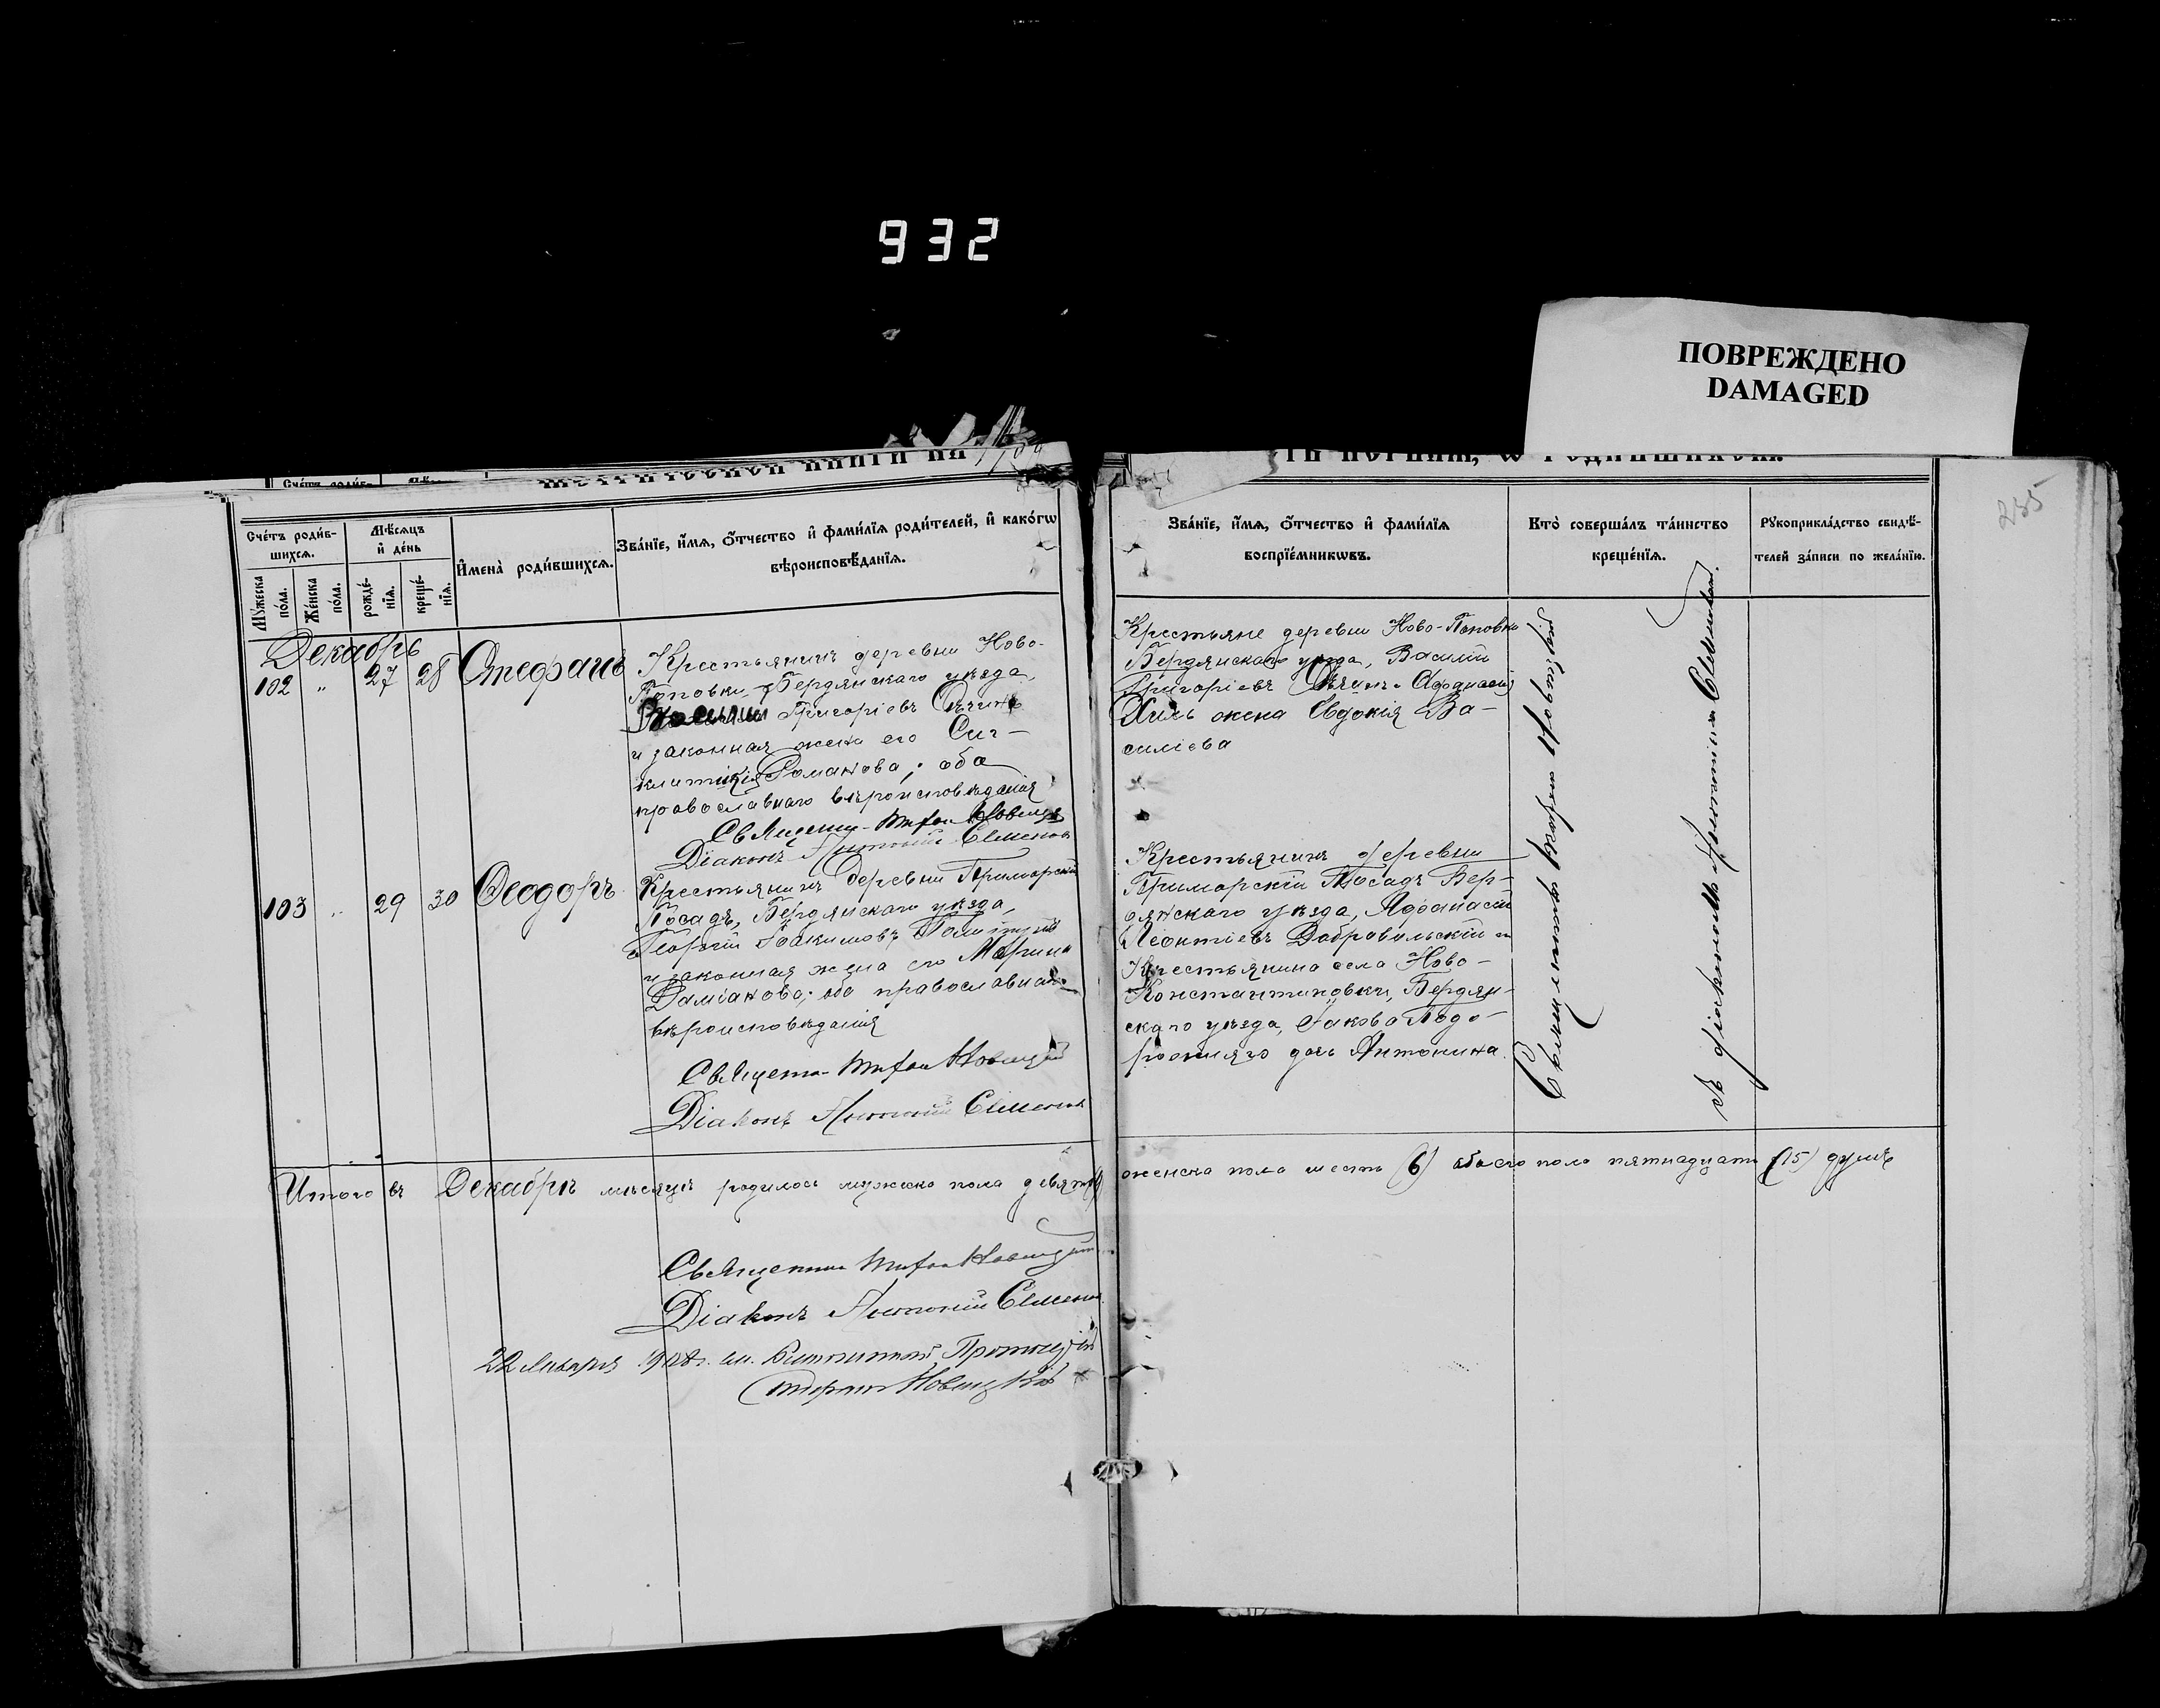 932
ПОВРЕЖДЕНО
DAMAGED
235
Сче́тъ роди́в-
шихсѧ.
Мꙋ́жеска по́ла.
Же́нска по́ла.
Мѣ́сяцъ
и҆ де́нь
рожде́-
нїѧ.
креще́-
нїѧ.
И҆мена̀ роди́вшихсѧ.
Зва́нїе, и҆́мѧ, ѻ҆́тчество и҆ фами́лїѧ роди́телей, и҆ како́гѡ
вѣроисповѣ́данїѧ.
Зва́нїе, и҆́мѧ, ѻ҆́тчество и҆ фами́лїѧ
воспрїе́мникѡвъ.
Кто̀ соверша́лъ та́инство
креще́нїѧ.
Рꙋкоприкла́дство свидѣ́-
телей за́писи по жела́нїю.
Декабрь
102 " 27 28 Стефанъ
Крестьянинъ деревни Ново-
Поповки, Бердянскаго уѣзда,
Григоріевъ
и законная жена его Син-
клитикія Романова; оба
православнаго вѣроисповѣданія
Священн. Новицкій
Діаконъ Антоній Семенов
Крестьяне деревни Ново-Поповки
Бердянскаго уѣзда, Василій
Григоріевъ и Афанасія
жена Евдокія Ва-
силіева
103 " 29 30 Ѳеодоръ
Крестьянинъ деревни Приморскій
Посадъ, Бердянскаго уѣзда,
Георгій Іоакимовъ
и законная жена его Марина
Даміанова; оба православнаго
вѣроисповѣданія
Священн. Новицкій
Діаконъ Антоній Семенов
Крестьянинъ деревни
Приморскій Посадъ Бер-
дянскаго уѣзда, Афанасій
Леонтіевъ Добровольскій и
Крестьянина села Ново-
Константиновки, Бердян-
скаго уѣзда, Іакова Подо-
рожняго дочь Антонина.
Священникъ Новицкій
съ діакономъ Антоніемъ Семеновым.
Итого въ Декабрѣ мѣсяцѣ родилось мужеска пола девять (9) женска пола шесть (6) обоего пола пятнадцать (15) душъ
Священникъ Новицкій
Діаконъ Антоній Семенов
22 Января 1908 г.
Новицкій